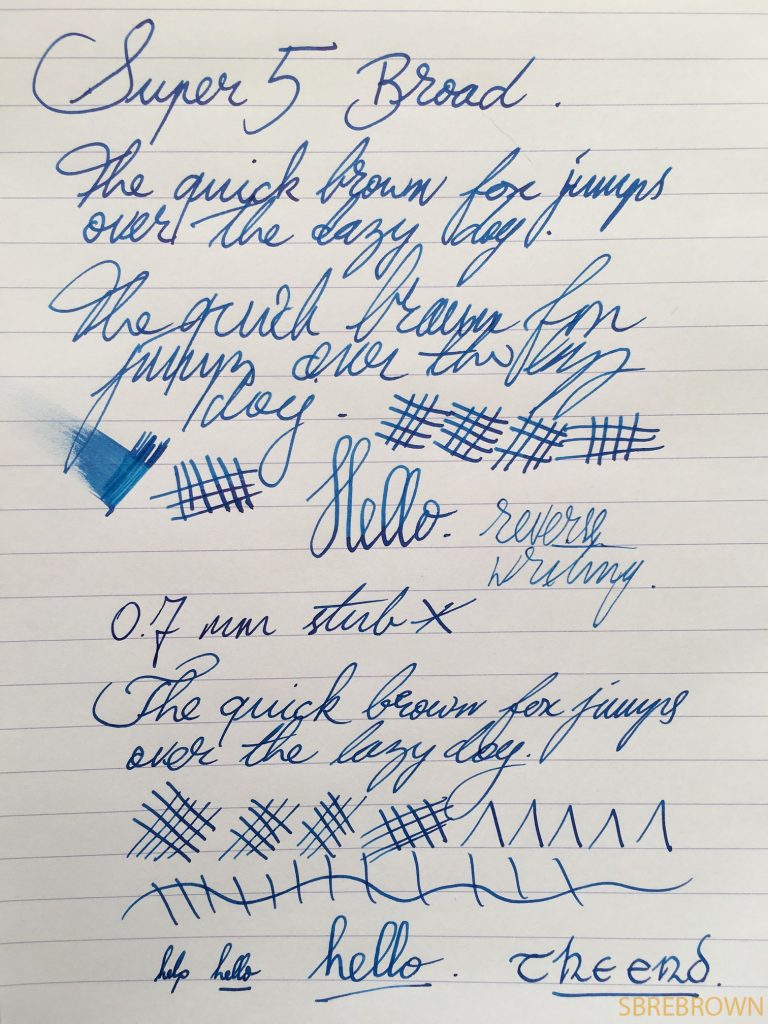 Super 5 Broad.
The quick brown fox jumps
over the lazy dog.
The quick brown fox
jumps over the lazy
dog.
Hello. reverse
writing.
0.7 mm stub X
The quick brown fox jumps
over the lazy dog.
help hello hello. The end.
SBREBROWN